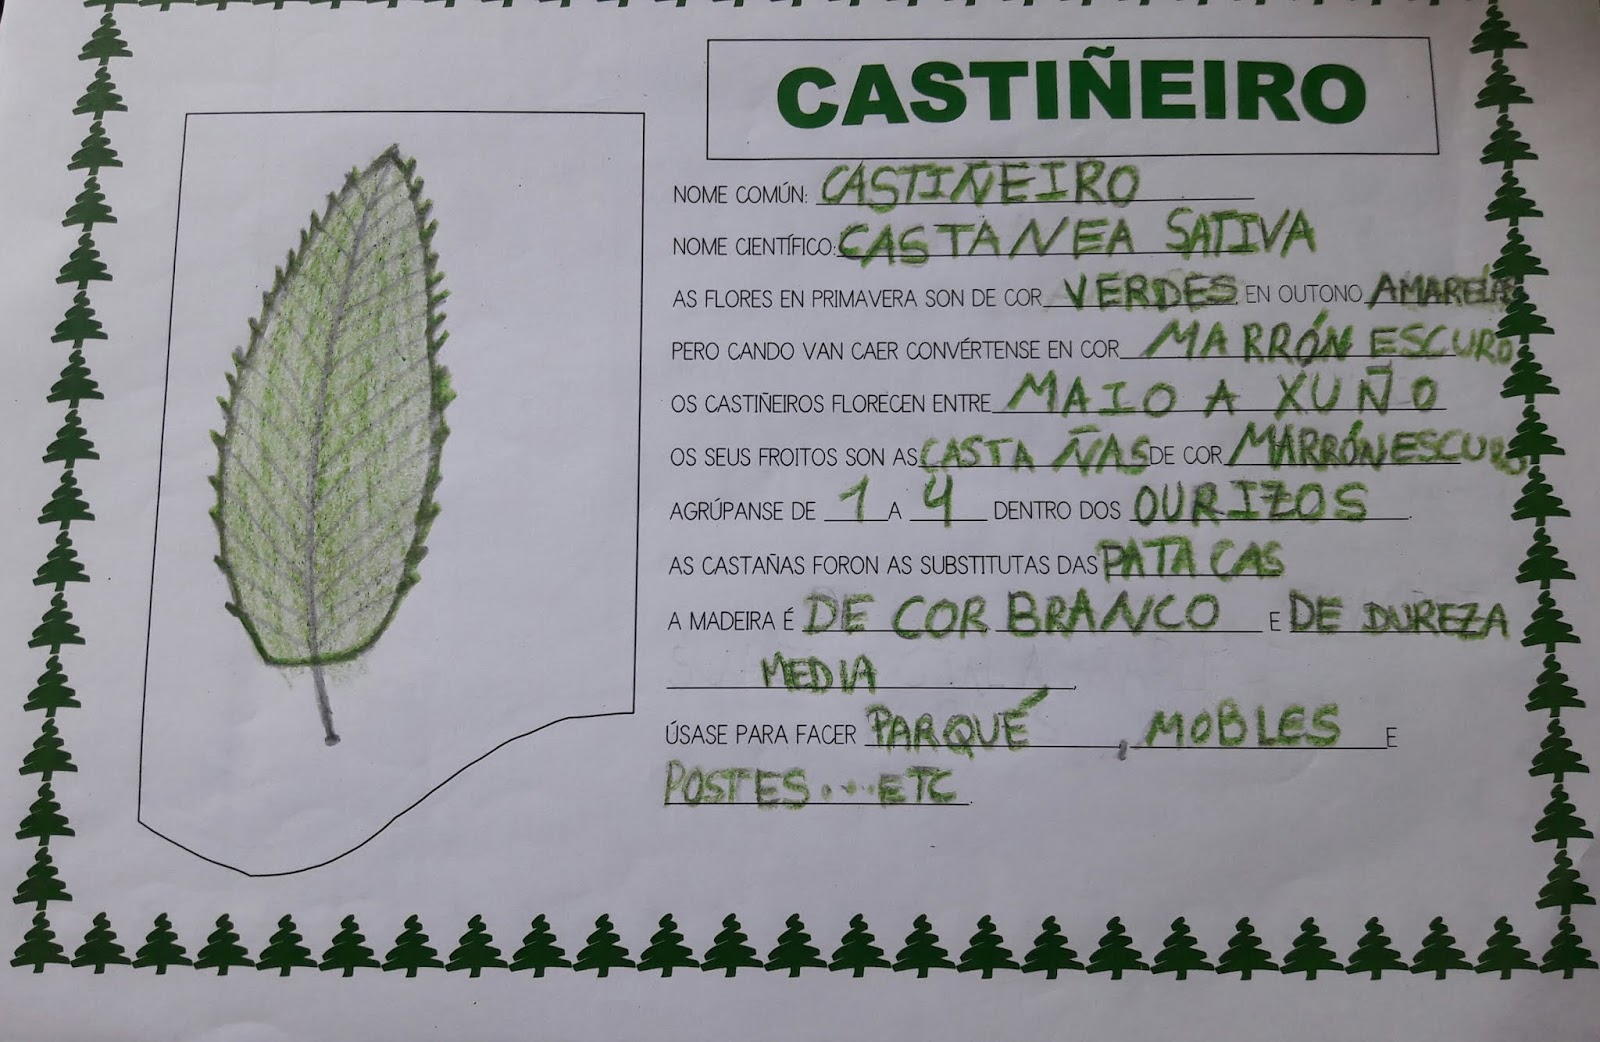 CASTIÑEIRO
NOME COMÚN: CASTIÑEIRO
NOME CIENTÍFICO: CASTANEA SATIVA
AS FLORES EN PRIMAVERA SON DE COR VERDES EN OUTONO AMARELA
PERO CANDO VAN CAER CONVÉRTENSE EN COR MARRÓN ESCURO
OS CASTIÑEIROS FLORECEN ENTRE MAIO A XUÑO
OS SEUS FROITOS SON AS CASTAÑAS DE COR MARRÓN ESCURO
AGRÚPANSE DE 1 A 4 DENTRO DOS OURIZOS.
AS CASTAÑAS FORON AS SUBSTITUTAS DAS PATACAS
A MADEIRA É DE COR BRANCO E DE DUREZA
MEDIA.
ÚSASE PARA FACER PARQUÉ, MOBLES E
POSTES...ETC.